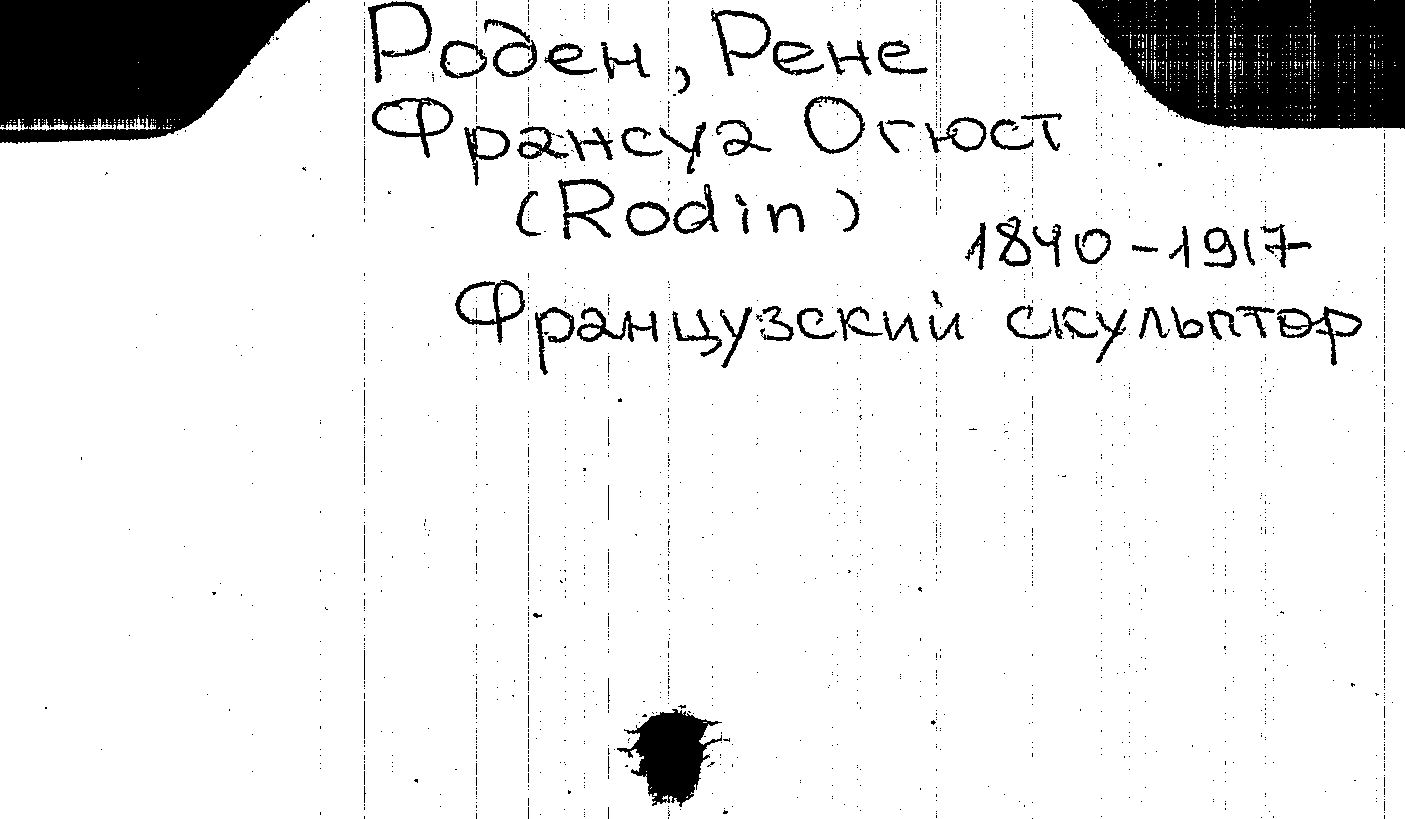 Роден, Рене
Франсуа Огюст
(Rodin)
1840-1917
Французский скульптор